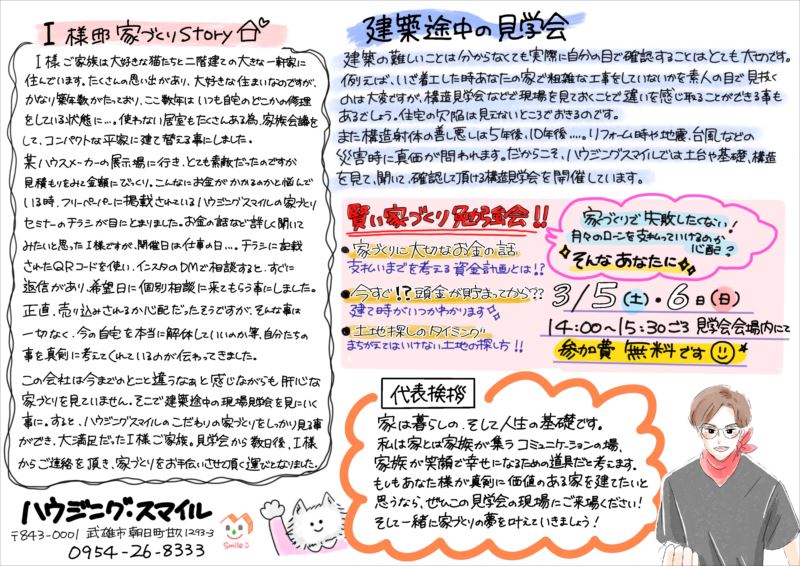 I様邸 家づくりStory
I様ご家族は大好きな猫たちと二階建ての大きな一軒家に
住んでいます。たくさんの思い出があり、大好きな住まいなのですが、
かなり築年数がたっており、ここ数年はいつも自宅のどこかの修理
をしている状態に…。使わない居室もたくさんある為、家族会議を
して、コンパクトな平家に建て替える事にしました。
某ハウスメーカーの展示場に行き、とても素敵だったのですが
見積もりをみて金額にびっくり。こんなにお金がかかるのかと悩んで
いる時、フリーペーパーに掲載されているハウジングスマイルの家づくり
セミナーのチラシが目にとまりました。お金の話など詳しく聞いて
みたいと思ったI様ですが、開催日は仕事の日…。チラシに記載
されたQRコードを使い、インスタのDMで相談すると、すぐに
返信があり、希望日に個別相談に来てもらう事にしました。
正直、売り込みされるか心配だったそうですが、そんな事は
一切なく、今の自宅を本当に解体していいのか等、自分たちの
事を真剣に考えてくれているのが伝わってきました。
この会社は今までのとこと違うなぁと感じながらも肝心な
家づくりを見ていません。そこで建築途中の現場見学会を見にいく
事に。すると、ハウジングスマイルのこだわりの家づくりをしっかり見る事
ができ、大満足だったI様ご家族。見学会から数日後、I様
からご連絡を頂き、家づくりをお手伝いさせて頂く運びとなりました。
ハウジング・スマイル
〒843-0001 武雄市朝日町甘久1293-3
0954-26-8333
smile
建築途中の見学会
建築の難しいことは分からなくても実際に自分の目で確認することはとても大切です。
例えば、いざ着工した時あなたの家で粗雑な工事をしていないかを素人の目で見抜く
のは大変ですが、構造見学会などで現場を見ておくことで違いを感じ取ることができる事も
あるでしょう。住宅の欠陥は見えないところでおきるのです。
また構造躯体の善し悪しは5年後、10年後…。リフォーム時や地震、台風などの
災害時に真価が問われます。だからこそ、ハウジングスマイルでは土台や基礎、構造
を見て、聞いて、確認して頂ける構造見学会を開催しています。
賢い家づくり勉強会!!
•家づくりに大切なお金の話
支払いまでを考える資金計画とは!?
•今すぐ!?頭金が貯まってから??
建て時がいつかわかります
•土地探しのタイミング
まちがえてはいけない土地の探し方!!
家づくりで失敗したくない!
月々のローンを支払っていけるのか
心配?
そんなあなたに
3/5(土)・6(日)
14:00~15:30ごろ 見学会会場内にて
参加費 無料です
代表挨拶
家は暮らしの、そして人生の基礎です。
私は家とは家族が集うコミュニケーションの場、
家族が笑顔で幸せになるための道具だと考えます。
もしもあなた様が真剣に価値のある家を建てたいと
思うなら、ぜひこの見学会の現場にご来場ください!
そして一緒に家づくりの夢を叶えていきましょう!